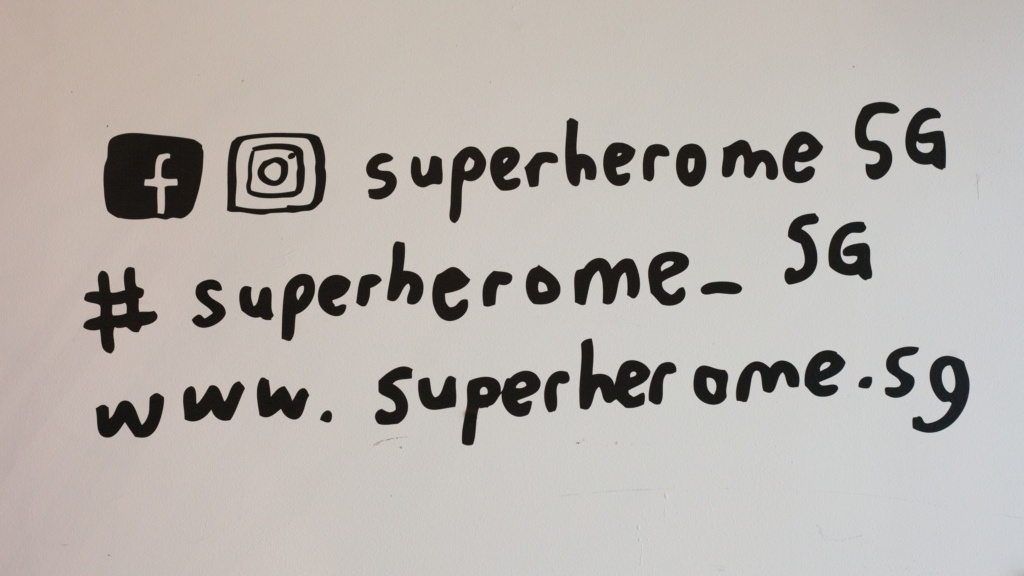 superherome SG
# superherome_ SG
www.superherome.sg